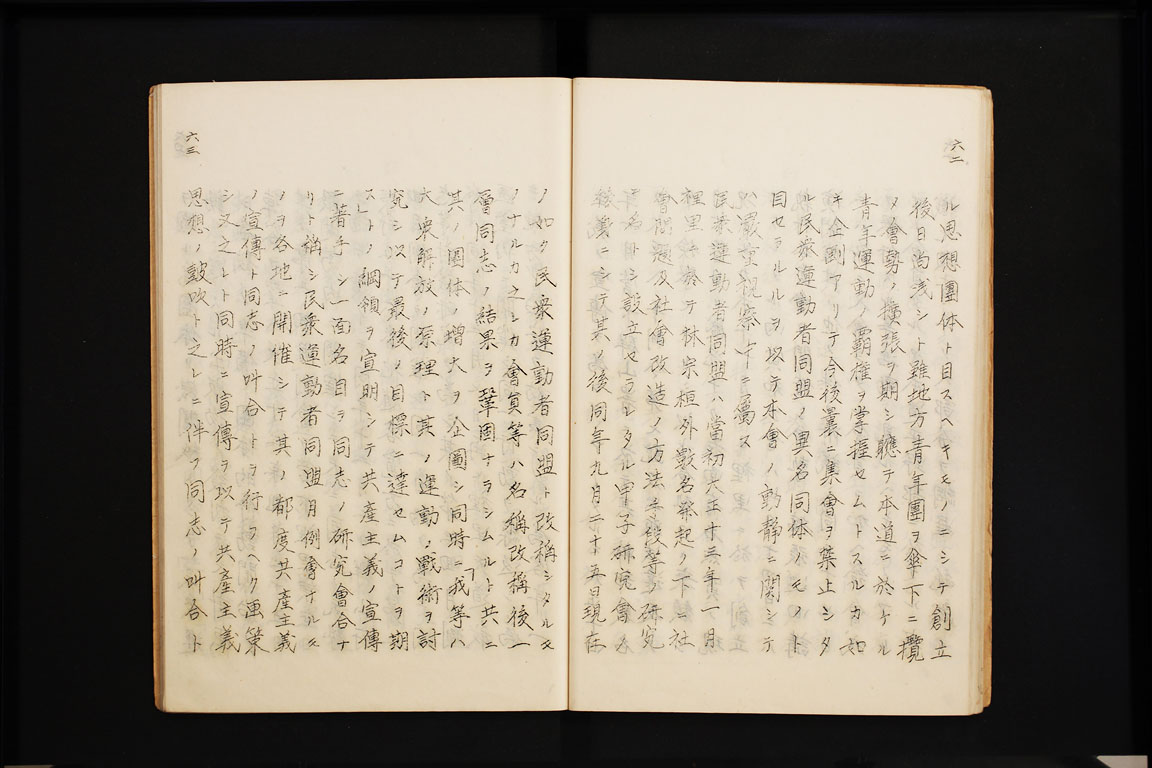 六二
ル思想團体ト目スヘキモノニシテ創立
後日尚浅シト雖地方青年團ヲ傘下ニ攬
メ會勢ノ擴張ヲ期シ聽テ本道ニ於ケル
青年運動ノ覇権ヲ掌握セムトスルカ如
キ企劃アリテ今後曩ニ集會ヲ禁止シタ
ル民衆運動者同盟ノ異名同体ノモノト
目セラルルヲ以テ本會ノ動静ニ関シテ
ハ嚴重視察中ニ屬ス
民衆運動者同盟ハ當初大正十三年一月
裡里ニ於テ林宗桓外數名発起ノ下ニ社
會問題及社會改造ノ方法手段等ノ研究
ヲ名トシ設立セラレタル甲子研究會ノ
後裔ニシテ其ノ後同年九月二十五日現在
六三
ノ如ク民衆運動者同盟ト改稱シタルモ
ノナルカ之レカ會員等ハ名稱改稱後一
層同志ノ結果ヲ鞏固ナラシムルト共ニ
其ノ團体ノ増大ヲ企圖シ同時ニ「我等ハ
大衆解放ノ原理ト其ノ運動ノ戰術ヲ討
究シ以テ最後ノ目標ニ達セムコトヲ期
ス」トノ綱領ヲ宣明シテ共産主義ノ宣傳
ニ著手シ一面名目ヲ同志ノ研究會合ナ
リト稱シ民衆運動者同盟月例會ナルモ
ノヲ各地ニ開催シテ其ノ都度共産主義
ノ宣傳ト同志ノ叫合トヲ行フヘク画策
シ又之レト同時ニ宣傳ヲ以テ共産主義
思想ノ鼓吹ト之レニ伴フ同志ノ叫合ト